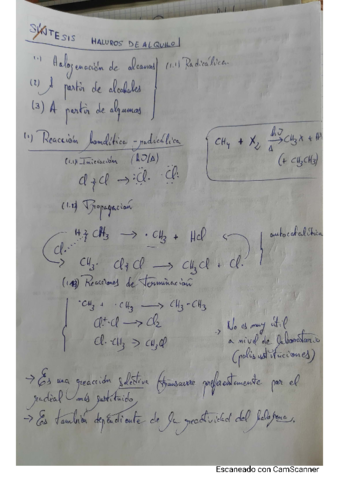 SÍNTESIS HALUROS DE ALQUILO
(1) Halogenación de alcanos (1.1) Radicálica
(2) A partir de alcoholes
(3) A partir de alquenos
(1) Reacción homolítica - radicálica
CH4 + X2 →hν Δ CH3X + H
(+ CH3CH3)
(1.1) Iniciación (hν/Δ)
Cl Cl → ·Cl· ·Cl·
Propagación
H CH3 → ·CH3 + HCl
Cl·
autocatalítica
CH3· Cl Cl → CH3Cl + Cl·
Reacciones de Terminación
·CH3 + ·CH3 → CH3-CH3
Cl· ·Cl → Cl2
Cl· ·CH3 → CH3Cl
→ No es muy útil
a nivel de laboratorio
(polisustituciones)
→ Es una reacción selectiva (transcurre preferentemente por el
radical más sustituido)
→ Es también dependiente de la reactividad del halógeno.
Escaneado con CamScanner